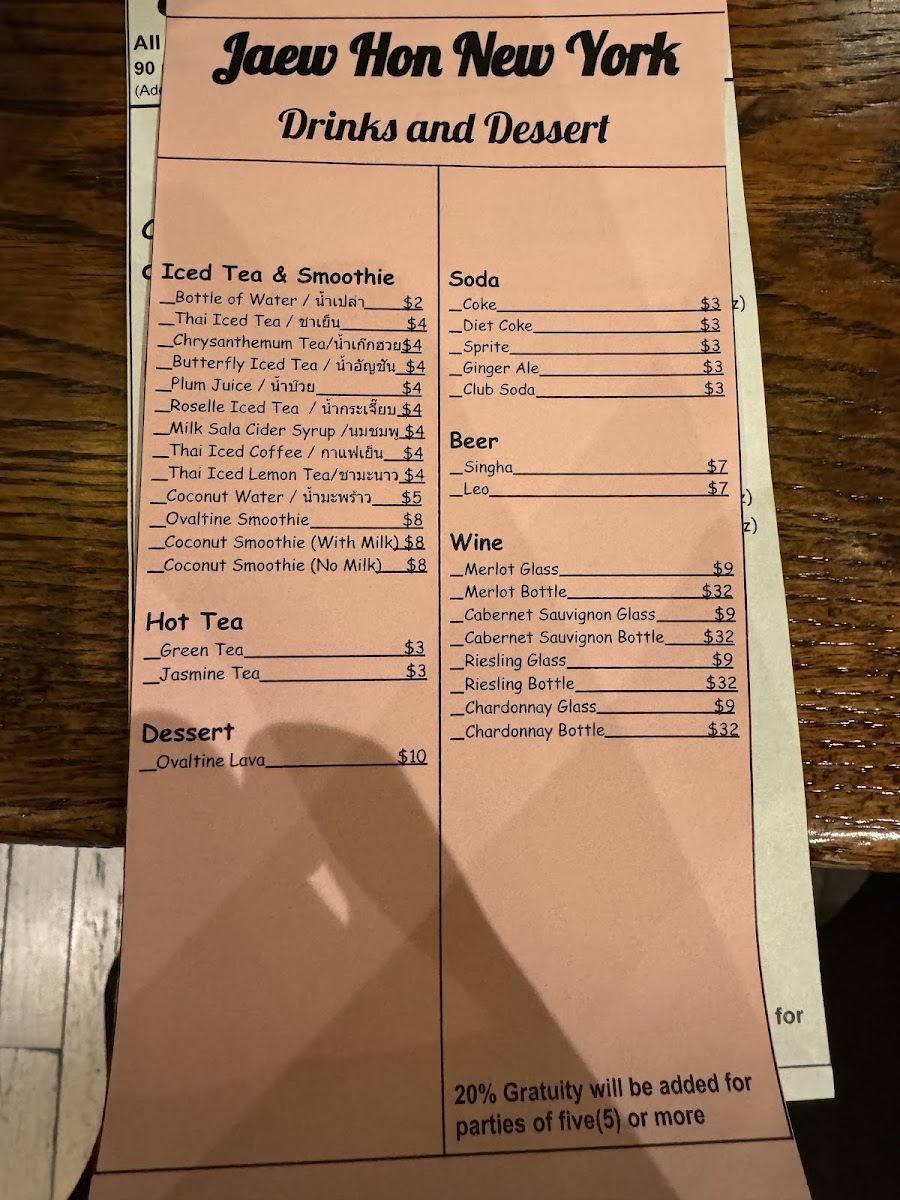 All
90
(Add
Jaew Hon New York
Drinks and Dessert
Iced Tea & Smoothie
_Bottle of Water / น้ำเปล่า $2
_Thai Iced Tea / ชาเย็น $4
_Chrysanthemum Tea/น้ำเก๊กฮวย $4
_Butterfly Iced Tea / น้ำอัญชัน $4
_Plum Juice / น้ำบ๊วย $4
_Roselle Iced Tea / น้ำกระเจี๊ยบ $4
_Milk Sala Cider Syrup /นมชมพู $4
_Thai Iced Coffee / กาแฟเย็น $4
_Thai Iced Lemon Tea/ชามะนาว $4
_Coconut Water / น้ำมะพร้าว $5
_Ovaltine Smoothie $8
_Coconut Smoothie (With Milk) $8
_Coconut Smoothie (No Milk) $8
Hot Tea
_Green Tea $3
_Jasmine Tea $3
Dessert
_Ovaltine Lava $10
Soda
_Coke $3
_Diet Coke $3
_Sprite $3
_Ginger Ale $3
_Club Soda $3
Beer
_Singha $7
_Leo $7
Wine
_Merlot Glass $9
_Merlot Bottle $32
_Cabernet Sauvignon Glass $9
_Cabernet Sauvignon Bottle $32
_Riesling Glass $9
_Riesling Bottle $32
_Chardonnay Glass $9
_Chardonnay Bottle $32
20% Gratuity will be added for
parties of five(5) or more
z)
z)
for